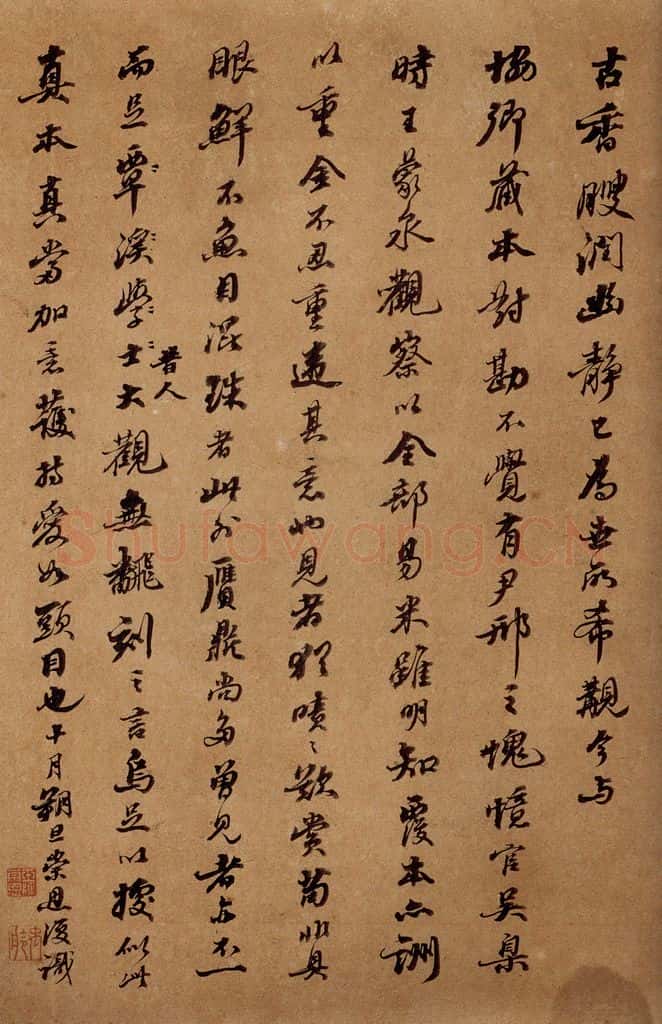 古香腴潤幽靜已為世所希覯今与
卿藏本對勘不覺有尹邢之愧憶官吳臬
時王蒙泉觀察以全部易米雖明知覆本亦酬
以重金不忍重違其意也見者猶嘖〻歎賞苟非具
眼鮮不魚目混珠者此外贗鼎尚多曾見者亦不一
而足覃溪學士大觀無翻刻之言烏足以據似此
昔人
真本真當加意護持愛如頭目也十月朔旦崇恩復識
Shufawang.CN